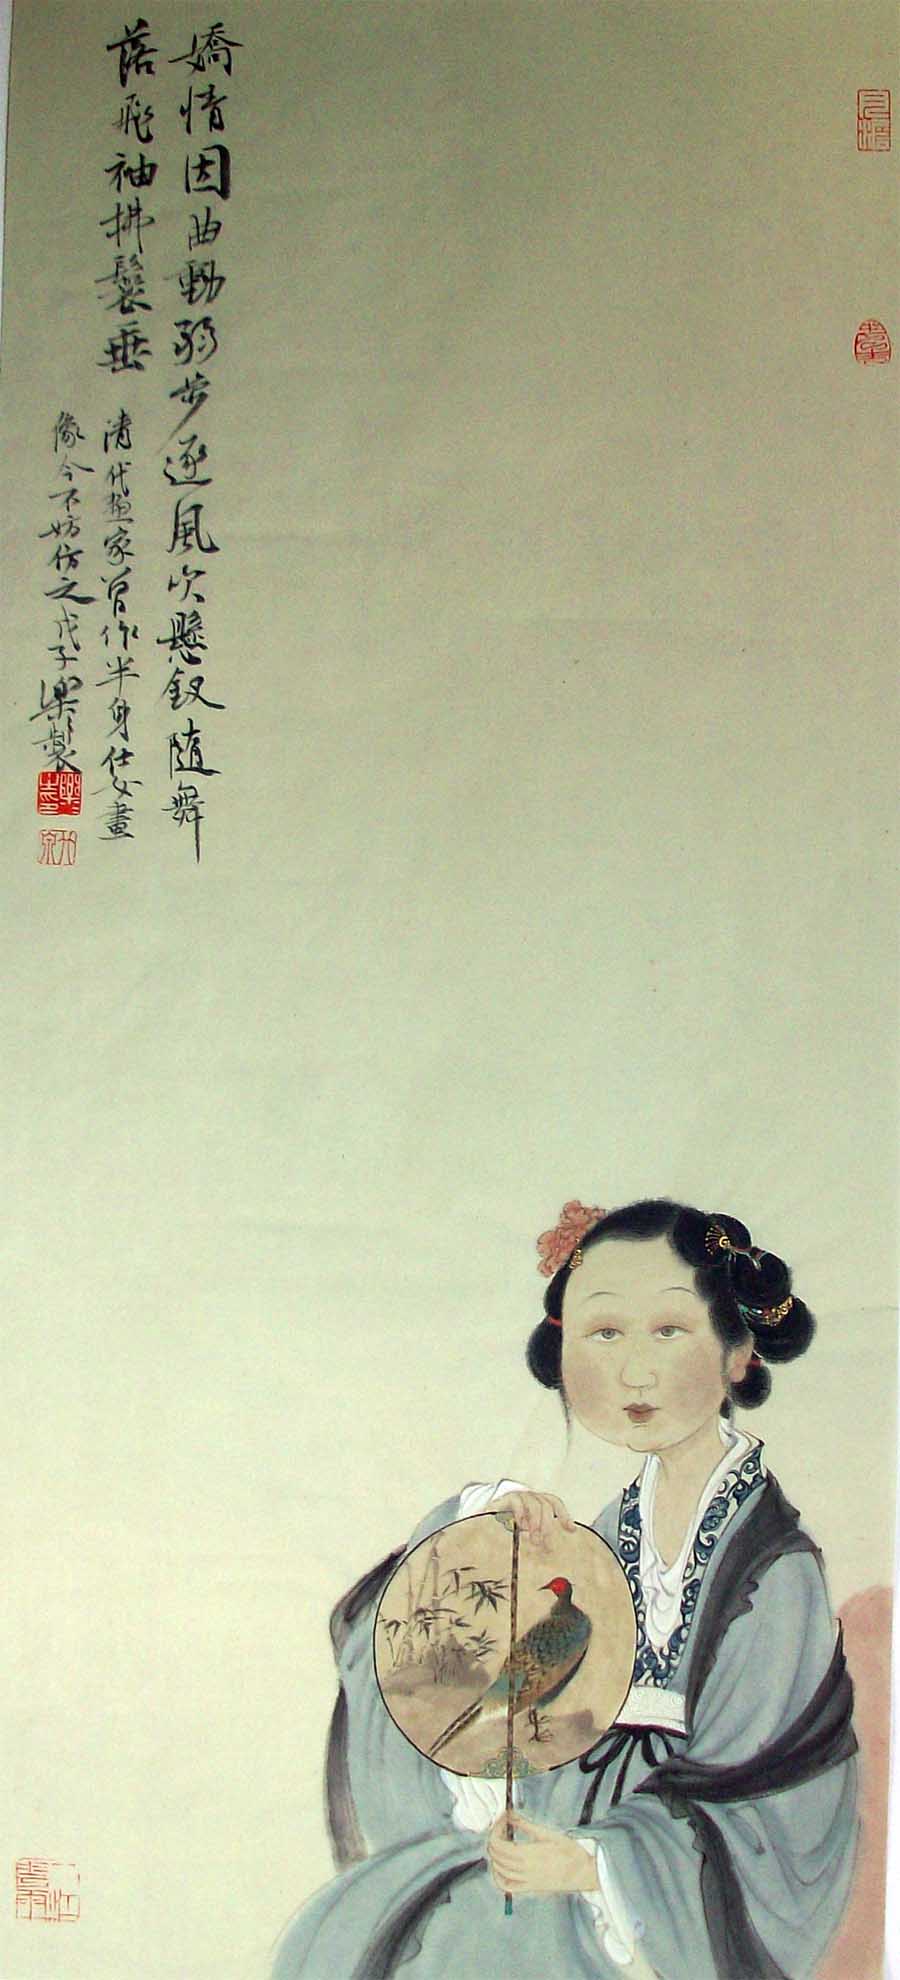 嬌情因曲動弱步逐風吹懸釵隨舞
落飛袖拂鬟垂 清代画家曾作半身仕女畫
像今不妨仿之戊子樂製